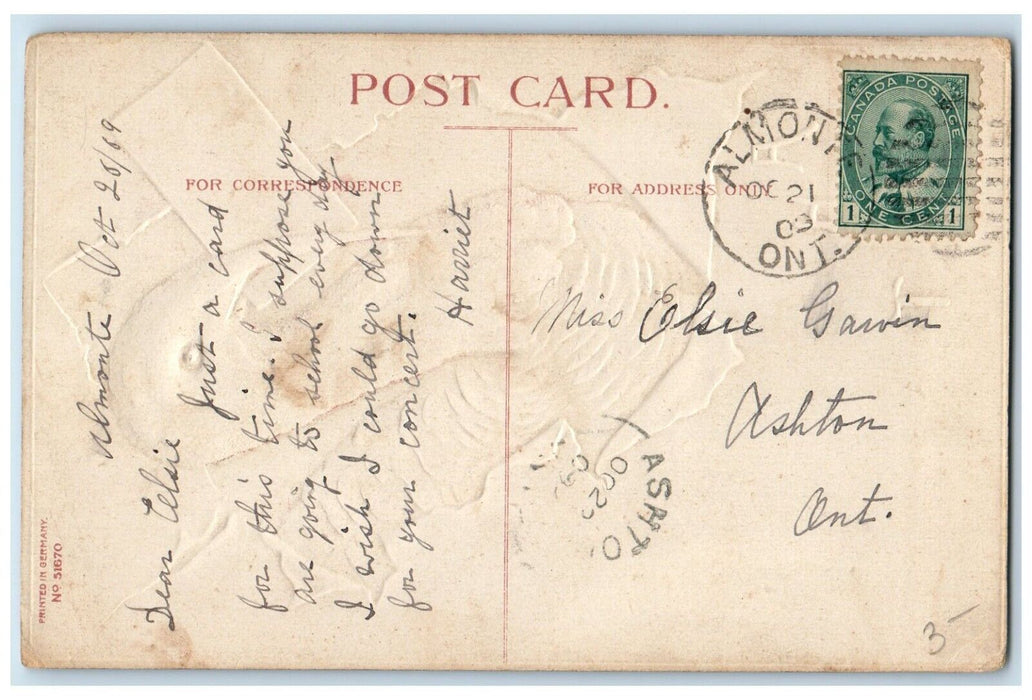 POST CARD.
FOR CORRESPONDENCE
FOR ADDRESS ONLY
Almonte Oct 20/09
Dear Elsie
Just a card
for this time. I suppose you
are going to school every day
I wish I could go down
for your concert.
Harriet
PRINTED IN GERMANY.
No 51670
CANADA POSTAGE
1 ONE CENT 1
ALMONTE
OC 21
09
ONT.
Miss Elsie Gawin
Ashton
Ont.
ASHTO
OC 2
09
3-